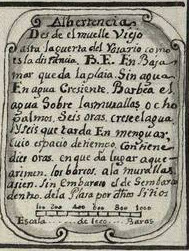 Albertencia
Desde el muelle Viejo
asta la puerta del Rosario como
es la distancia. B.E. En Baja
mar queda la plaia Sin agua
En agua Cresiente. Barbea el
agua Sobre las murallas ocho
Palmos. Seis oras, crese el agua
y Seis que tarda En menguar,
cuio espacio de tiempo, Contiene
dies oras. en que da lugar a que
arrimen los barcos, a la muralla
asien. Sin Embarco
dentro, de la Plasa por otros Sitios
Escala de 1000 Baras